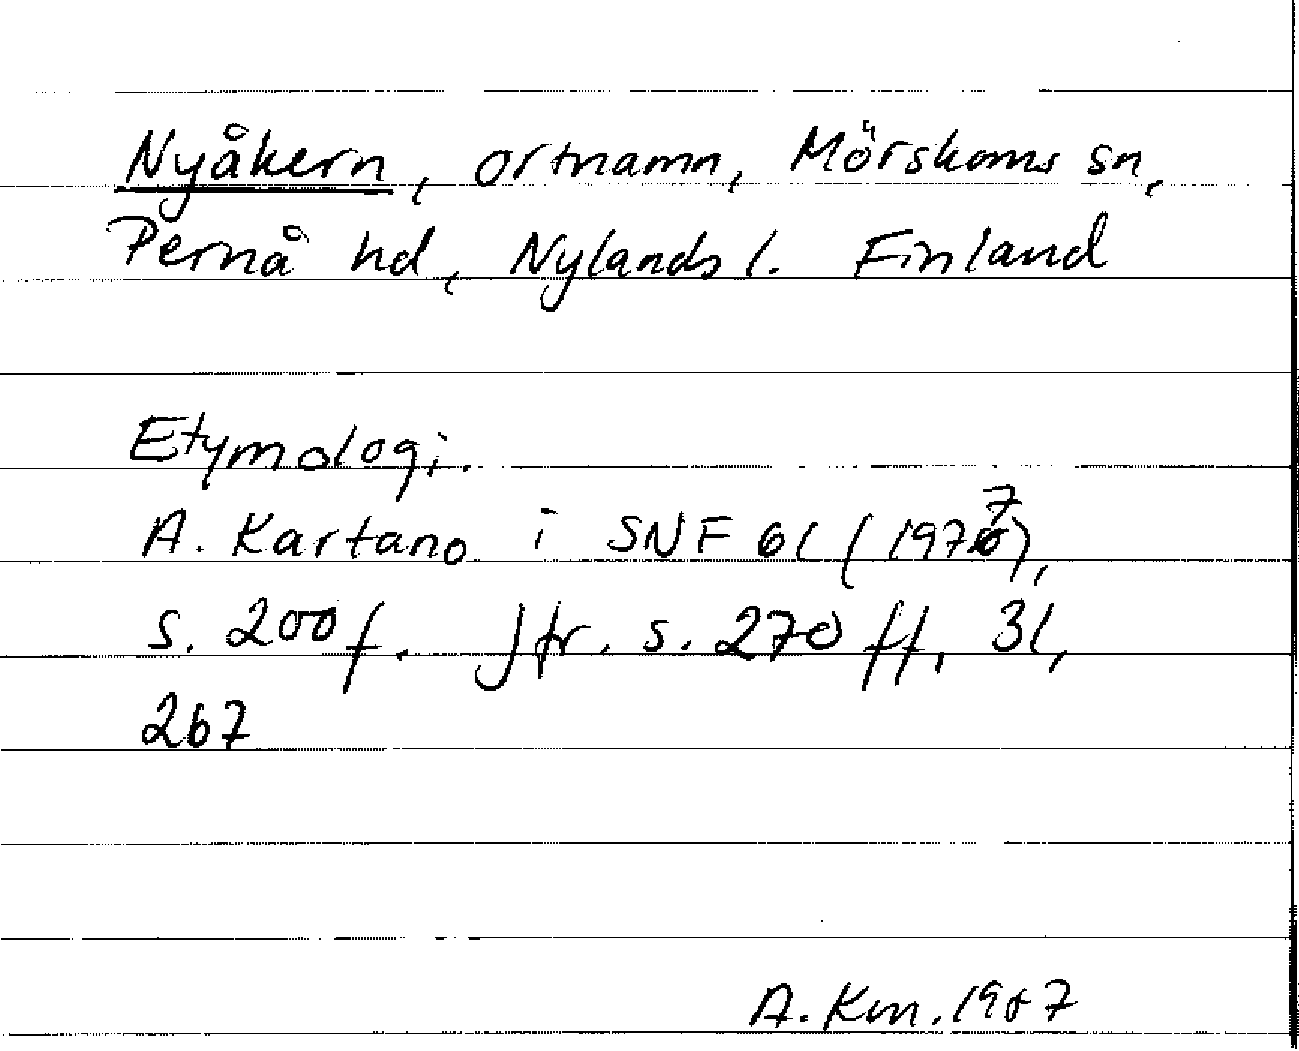 Nyåkern, ortnamn, Mörskoms sn,
Pernå hd, Nylands l. Finland
Etymologi.
A. Kartano i SNF 61 (1977),
s. 200 f. Jfr. s. 270 ff, 31,
267
A. Km. 1987